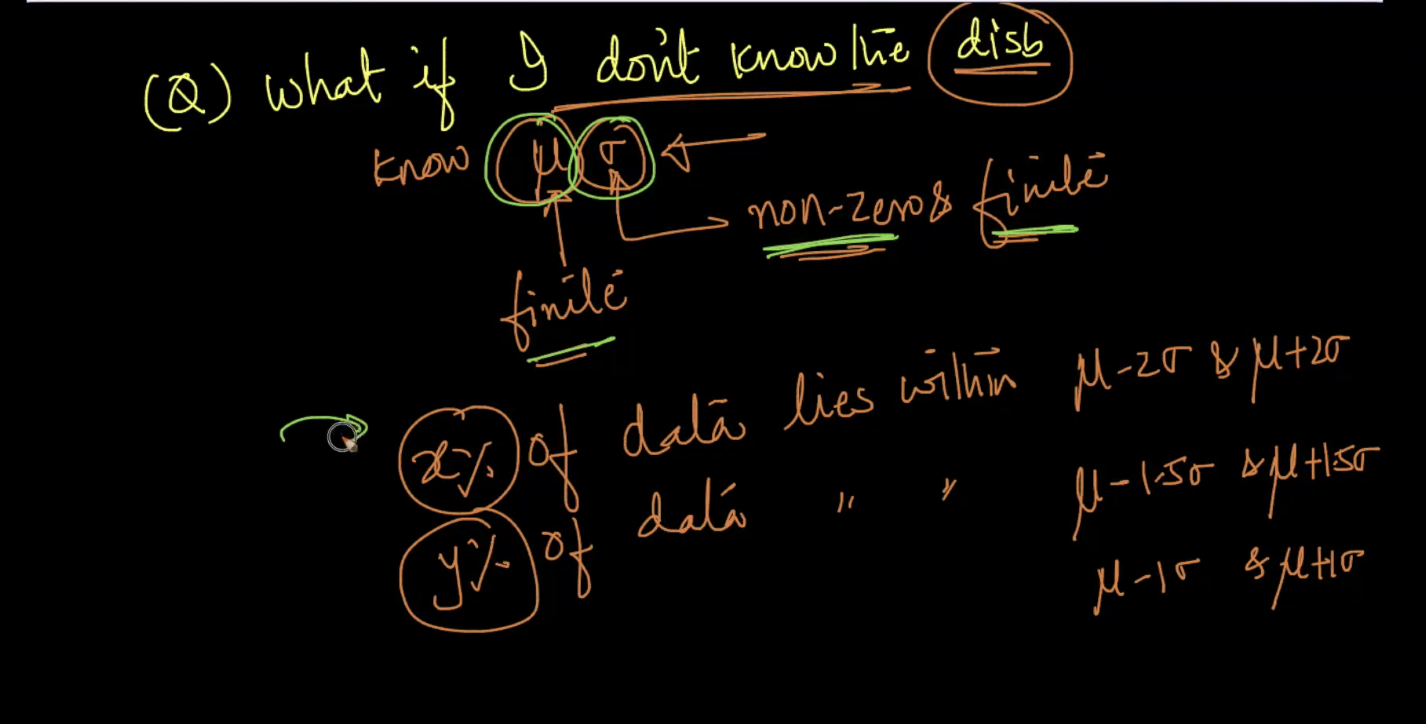 (Q) what if I don't know the disb
know μ σ
non-zero & finite
finite
x% of data lies within μ-2σ & μ+2σ
y% of data " " μ-1.5σ & μ+1.5σ
μ-1σ & μ+1σ